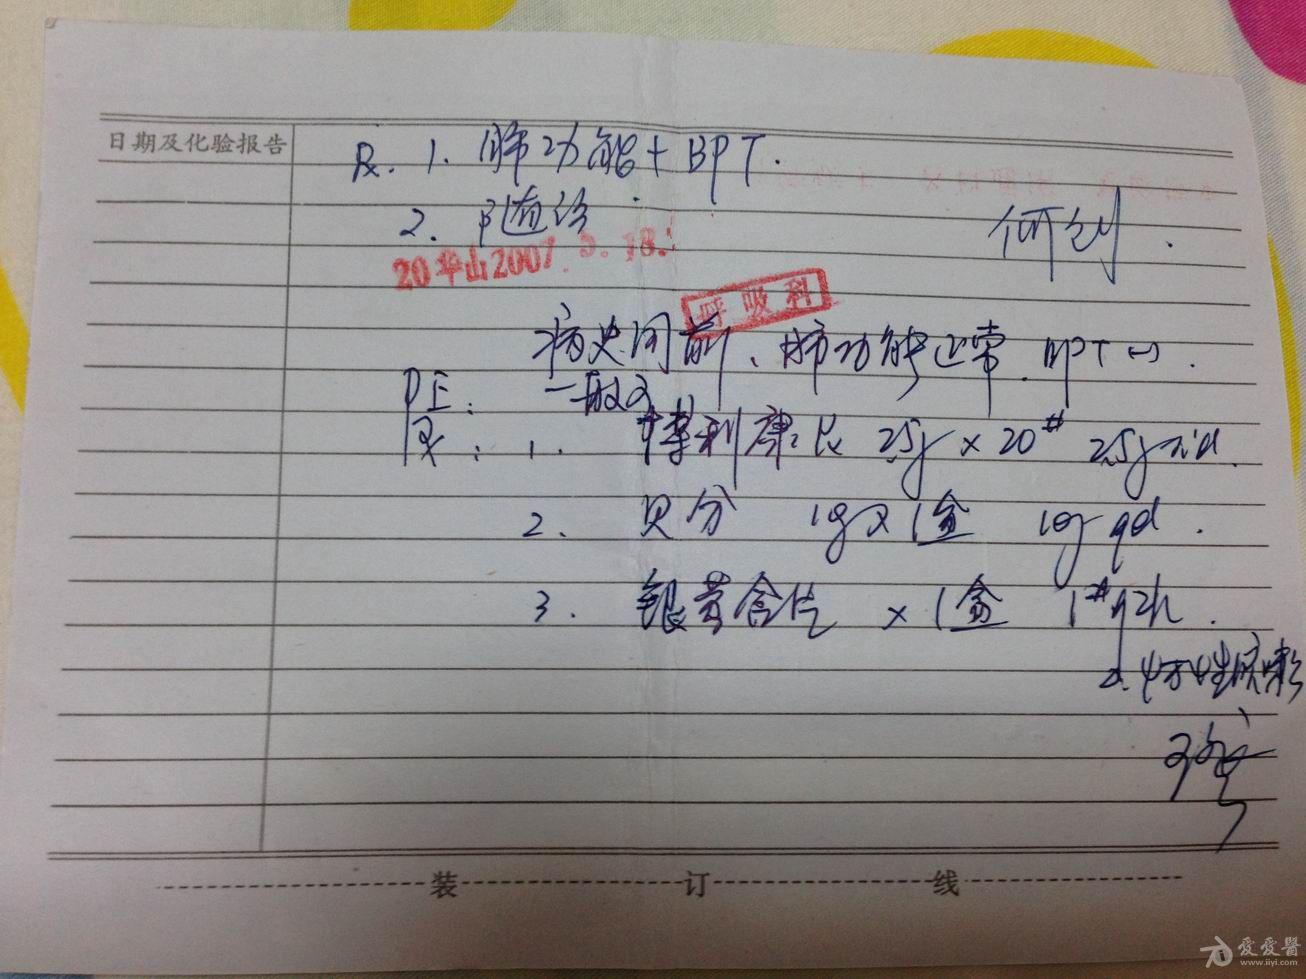 日期及化验报告
Rx. 1. 肺功能+BPT.
2. 随诊
20华山2007.5.18.
呼吸科
病史同前、肺功能正常.BPT(-).
PE: 一般可
Rx: 1. 博利康尼 2.5 × 20# 2.5
2. 贝分 10g × 1盒 10g qd.
3. 银黄含片 × 1盒 1# q2h.
装订线
爱爱医
www.iiyi.com